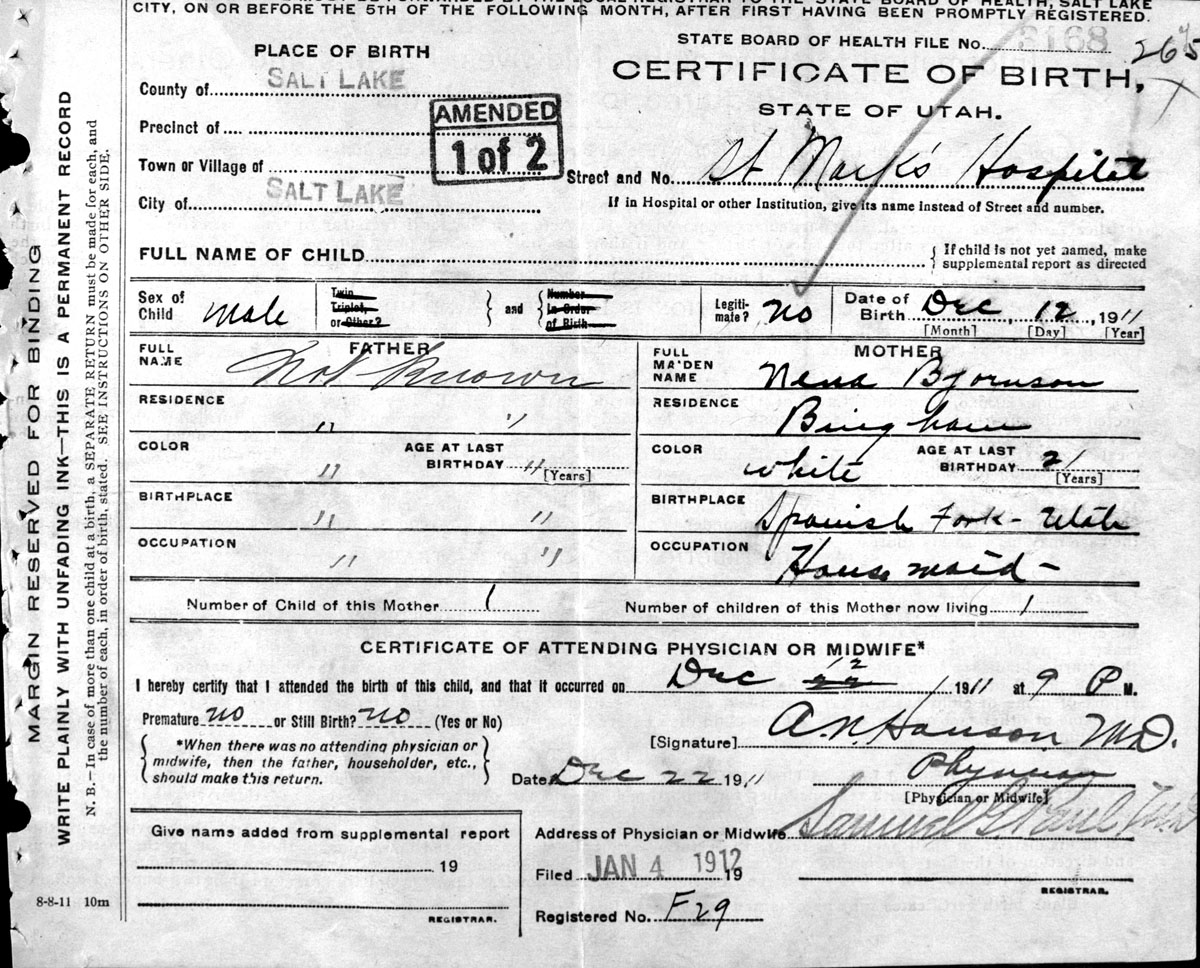 CITY, ON OR BEFORE THE 5TH OF THE FOLLOWING MONTH, AFTER FIRST HAVING BEEN PROMPTLY REGISTERED.
STATE BOARD OF HEALTH FILE No. 3168
267
CERTIFICATE OF BIRTH,
STATE OF UTAH.
PLACE OF BIRTH
County of SALT LAKE
Precinct of
Town or Village of
City of SALT LAKE
AMENDED
1 of 2
Street and No. St Mark's Hospital
If in Hospital or other Institution, give its name instead of Street and number.
FULL NAME OF CHILD
{ If child is not yet named, make
supplemental report as directed
Sex of
Child Male
Twin
Triplet,
or Other? } and { Number
in Order
of Birth
Legiti-
mate? no
Date of
Birth Dec, 12, 1911
[Month] [Day] [Year]
FATHER
FULL
NAME Not Known
RESIDENCE " "
COLOR "
AGE AT LAST
BIRTHDAY "
[Years]
BIRTHPLACE " "
OCCUPATION " "
MOTHER
FULL
MAIDEN
NAME Nena Bjornson
RESIDENCE Bingham
COLOR white
AGE AT LAST
BIRTHDAY 21
[Years]
BIRTHPLACE Spanish Fork - Utah
OCCUPATION House maid -
Number of Child of this Mother 1
Number of children of this Mother now living 1
CERTIFICATE OF ATTENDING PHYSICIAN OR MIDWIFE*
I hereby certify that I attended the birth of this child, and that it occurred on Dec 22 12 1911 at 9 P M.
Premature no or Still Birth? no (Yes or No)
{ *When there was no attending physician or
midwife, then the father, householder, etc.,
should make this return. }
[Signature] A. N. Hanson M.D.
Date Dec 22 1911
Physician
[Physician or Midwife]
Give name added from supplemental report
19
REGISTRAR.
Address of Physician or Midwife
Samuel G. Paul, M.D.
Filed JAN 4 1912 19
REGISTRAR.
Registered No. F29
8-8-11 10m
MARGIN RESERVED FOR BINDING
WRITE PLAINLY WITH UNFADING INK—THIS IS A PERMANENT RECORD
N. B.—In case of more than one child at a birth, a SEPARATE RETURN must be made for each, and
the number of each, in order of birth, stated. SEE INSTRUCTIONS ON OTHER SIDE.